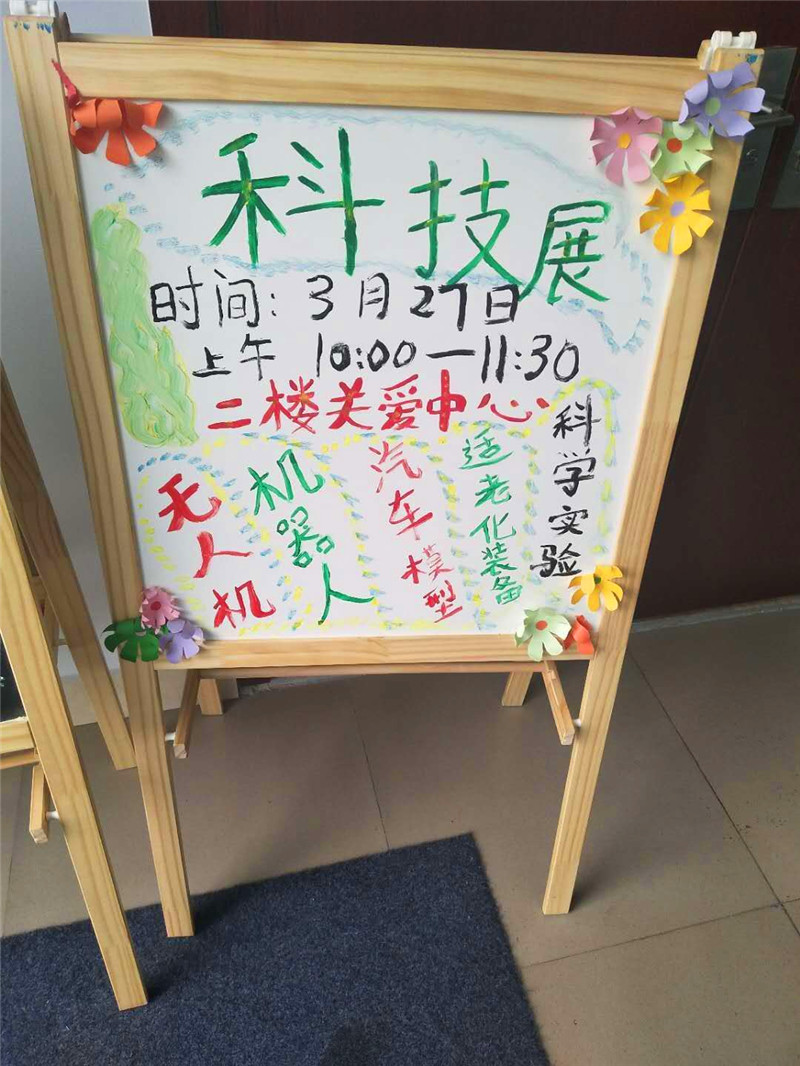 科技展
时间：3月27日
上午 10:00—11:30
二楼关爱中心
无人机
机器人
汽车模型
适老化装备
科学实验